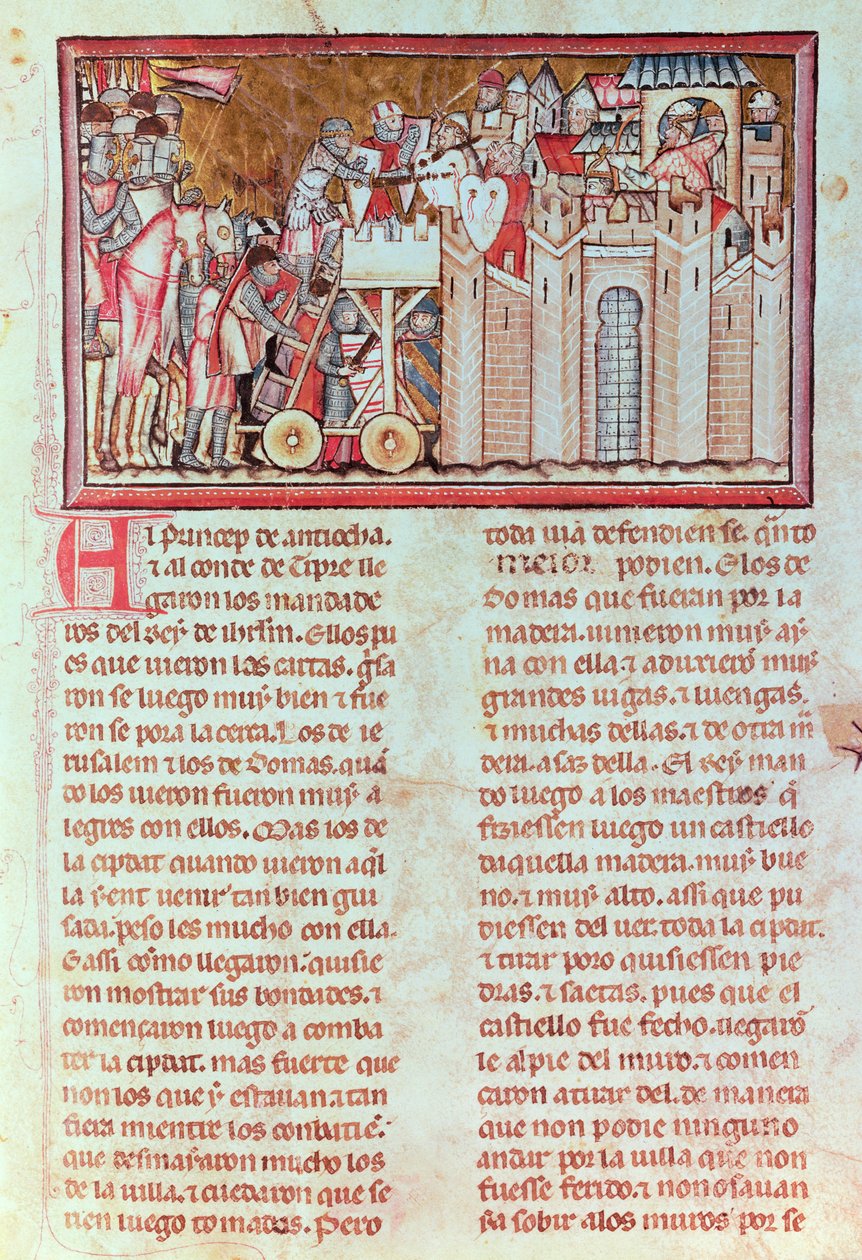 Al Princep de antiocha.
⁊ al conde de Tipre lle
garon los mandade
ros del Rey de ihrlīn. Ellos pu
es que uieron las cartas. gͥsa
ron se luego muy bien ⁊ fue
ron se pora la cerca. Los de ie
rusalem ⁊ los de Domas. quā
do los uieron fueron muy a
legres con ellos. Mas los de
la cipdat quando uieron aq̄l
la yent uenir tan bien gui
sada. peso les mucho con ella.
E assi cōmo llegaron. quisie
ron mostrar sus bondades. ⁊
començaron luego a comba
ter la cipdat. mas fuerte que
non los que y estauan. ⁊ tan
fiera mientre los conbatiē.
que desmayaron mucho los
de la uilla. ⁊ cuedaron que se
rien luego tomados. Pero
toda uia defendien se. q̄nto
meior podien. E los de
Domas que fueran por la
madera. uinieron muy ay
na con ella. ⁊ aduxierō muy
grandes uigas. ⁊ luengas.
⁊ muchas dellas. ⁊ de otra m̄
dera. asaz della. El Rey man
do luego a los maestros q̄
fiziessen luego un castiello
daquella madera. muy bue
no. ⁊ muy alto. assi que pu
diessen del uer. toda la cipdat.
⁊ tirar poro quisiessen pie
dras. ⁊ saetas. pues que el
castiello fue fecho. llegarō
le al pie del muro. ⁊ comen
caron a tirar del. de manera
que non podie ninguno
andar por la uilla que non
fuesse ferido. ⁊ non osauan
ya sobir a los muros por se